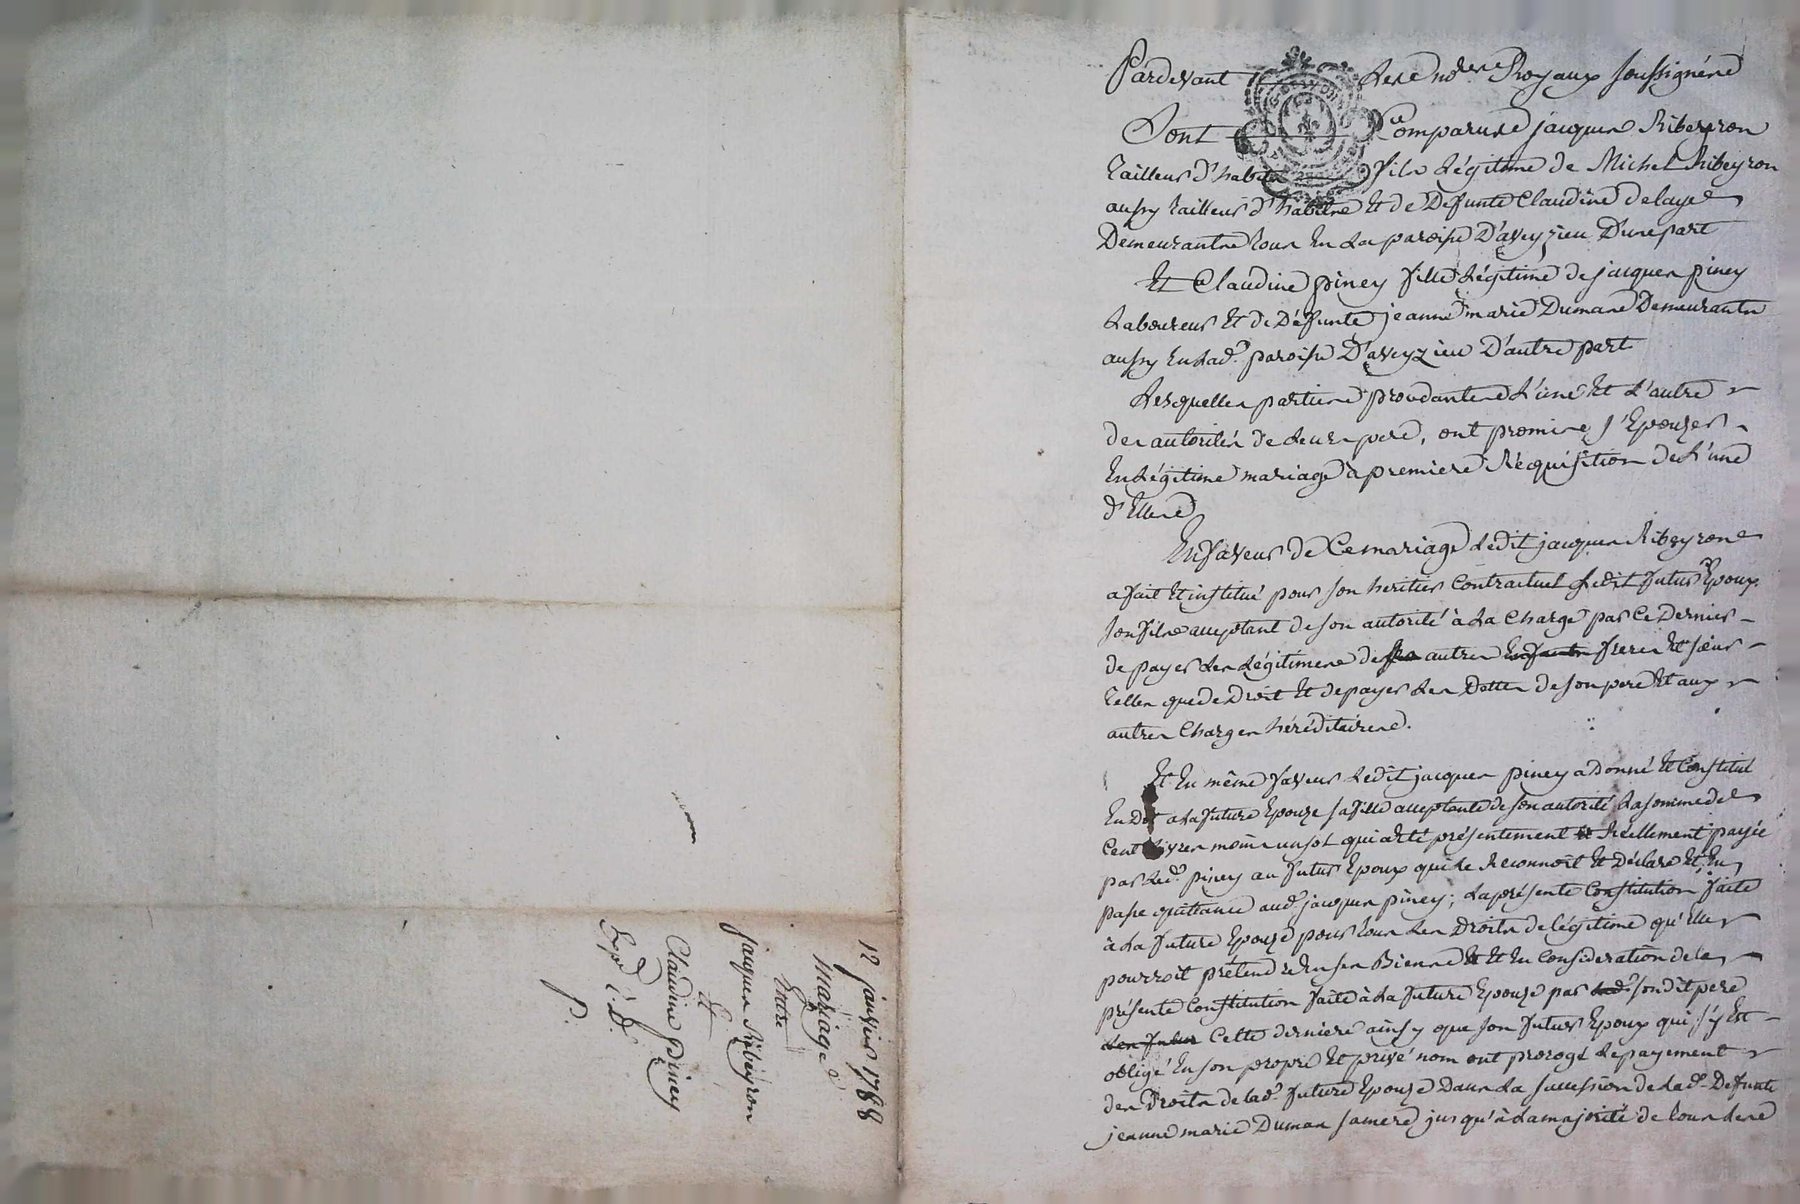 12 janvier 1788
Mariage
Entre
jacques Ribeyron
Et
Claudine Piney
Expé
P.
Pardevant Les nores Royaux soussignés
Sont Comparus jacques Ribeyron
tailleur d'habits fils Légitime de Michel Ribeyron
aussy tailleur d'habits Et de Defunte Claudine delaye
Demeurants tous En La paroisse D'aveyzieu D'une part
Et Claudine piney fille Légitime de jacques piney
Laboureur Et de Défunte jeanne marie Dumas Demeurants
aussy En Lad.e paroisse D'aveyzieu D'autre part
Lesquelles parties procédantes L'une Et L'autre
des autorités de Leurs pere, ont promis s'Epouser
En Légitime mariage à premiere Réquisition de L'une
d'Elles
En faveur de Ce mariage Ledit jacques Ribeyron
a fait Et institué pour son heritier Contractuel Ledit futur Epoux
son fils acceptant de son autorité à La Charge par Ce Dernier
de payer Les Légitimes de ses autres Enfants freres Et sœurs
telles que de Droit Et de payer Les Dettes de son pere Et aux
autres Charges héréditaires.
Et En même faveur Ledit jacques piney a Donné Et Constitué
En Dot a La future Epouze sa fille acceptante de son autorité La somme de
Cent Livres moins un sol qui a été présentement Et Réellement payée
par Led. piney au futur Epoux qui Le Reconnoit Et Déclare Et En
passe quittance aud. jacques piney; La présente Constitution faite
à La future Epouze pour tous Les Droits de légitime qu'Elle
pourroit prétendre En ses Biens Et Et En Consideration de la
présente Constitution faite à La future Epouze par Led. son dit pere
Les futurs Cette derniere ainsy que son futur Epoux qui s'y Est
obligé En son propre Et privé nom ont prorogé Le payement
des Droits de Lad.e future Epouze Dans La succession de Lad.e Defunte
jeanne marie Dumas sa mere jusqu'à La majorité de tous Les